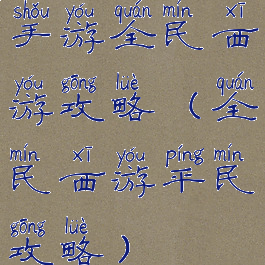 shǒu yóu quán mín xī
手游全民西
yóu gōng lüè quán
游攻略（全
mín xī yóu píng mín
民西游平民
gōng lüè
攻略）